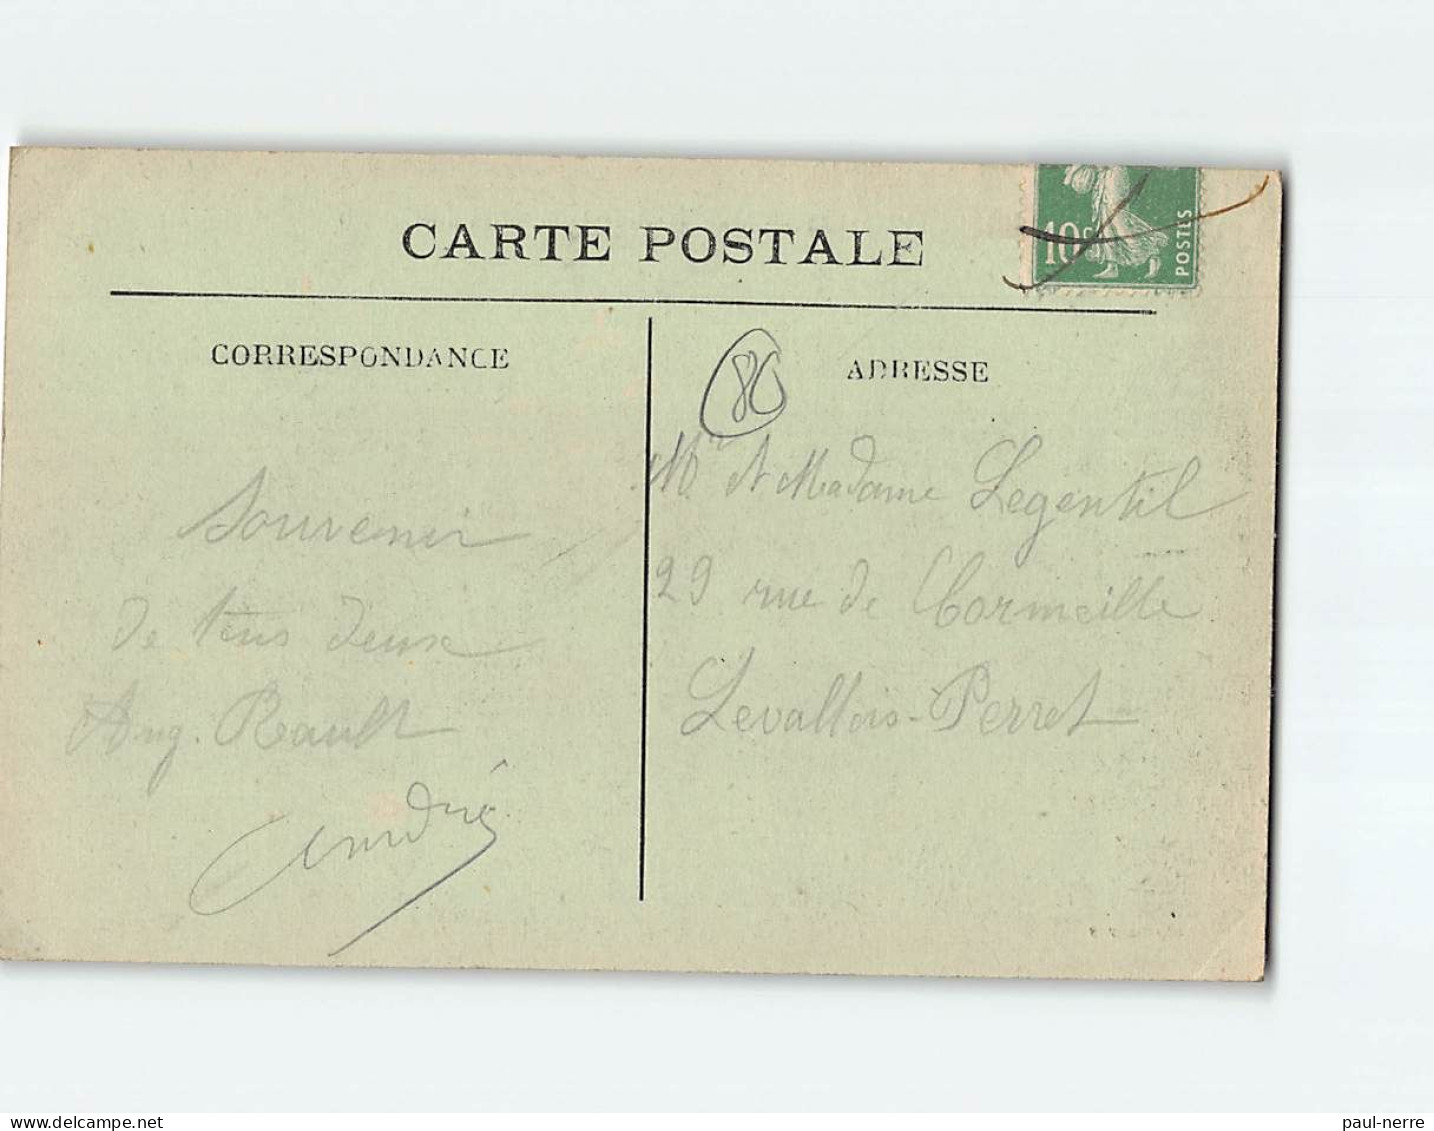 CARTE POSTALE
10c
POSTES
CORRESPONDANCE
ADRESSE
80
Souvenir
de tous deux
Aug. Reault
André
Mr et Madame Legentil
29 rue de Cormeille
Levallois-Perret
www.delcampe.net
paul-nerre